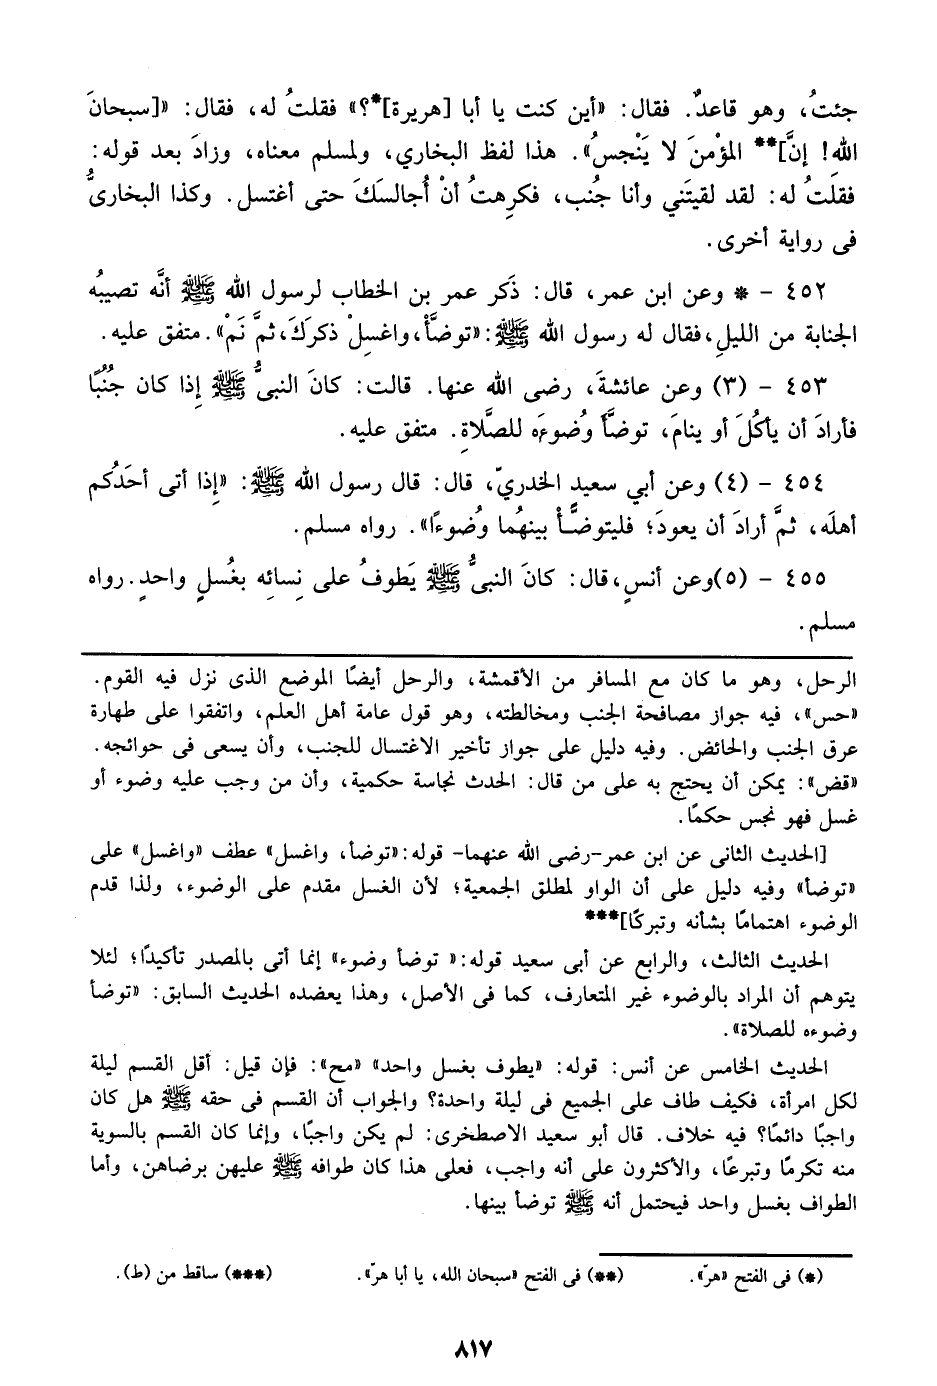 جئتُ، وهو قاعدٌ. فقال: «أين كنت يا أبا [هريرة]*؟» فقلتُ له، فقال: «[سبحانَ
اللهِ! إنَّ]** المؤْمنَ لا يَنْجسُ». هذا لفظ البخاري، ولمسلم معناه، وزادَ بعد قوله:
فقلتُ له: لقد لقيتَني وأنا جنُب، فكرِهتُ أنْ أُجالسكَ حتى أغتسل. وكذا البخارىُّ
فى رواية أخرى.
٤٥٢ – * وعن ابن عمر، قال: ذَكر عمر بن الخطاب لرسول الله ﷺ أنَّه تصيبُه
الجنابة من الليلِ،فقال له رسول الله ﷺ:«توضَّأْ،واغسِلْ ذكرَكَ،ثمَّ نَمْ».متفق عليه.
٤٥٣ – (٣) وعن عائشةَ، رضى الله عنها. قالت: كانَ النبيُّ ﷺ إِذا كان جُنُبًا
فأرادَ أن يأكُلَ أو ينامَ، توضَّأَ وُضوءَه للصَّلاةِ. متفق عليه.
٤٥٤ – (٤) وعن أبي سعيدٍ الخدريّ، قال: قال رسول الله ﷺ: «إِذا أتى أحَدُكم
أهلَه، ثمَّ أرادَ أن يعودَ؛ فليتوضَّأْ بينهُما وُضوءًا». رواه مسلم.
٤٥٥ – (٥)وعن أنسٍ،قال: كانَ النبيُّ ﷺ يَطوفُ على نِسائِه بغُسلٍ واحدٍ.رواه
مسلم.
الرحل، وهو ما كان مع المسافر من الأقمشة، والرحل أيضًا الموضع الذى نزل فيه القوم.
«حس»، فيه جواز مصافحة الجنب ومخالطته، وهو قول عامة أهل العلم، واتفقوا على طهارة
عرق الجنب والحائض. وفيه دليل على جواز تأخير الاغتسال للجنب، وأن يسعى فى حوائجه.
«قض»: يمكن أن يحتج به على من قال: الحدث نجاسة حكمية، وأن من وجب عليه وضوء أو
غسل فهو نجس حكمًا.
[الحديث الثانى عن ابن عمر–رضى الله عنهما– قوله:«توضأ، واغسل» عطف «واغسل» على
«توضأ» وفيه دليل على أن الواو لمطلق الجمعية؛ لأن الغسل مقدم على الوضوء، ولذا قدم
الوضوء اهتمامًا بشأنه وتبركًا]***
الحديث الثالث، والرابع عن أبى سعيد قوله:« توضأ وضوء» إنما أتى بالمصدر تأكيدًا؛ لئلا
يتوهم أن المراد بالوضوء غير المتعارف، كما فى الأصل، وهذا يعضده الحديث السابق: «توضأ
وضوءه للصلاة».
الحديث الخامس عن أنس: قوله: «يطوف بغسل واحد» «مح»: فإن قيل: أقل القسم ليلة
لكل امرأة، فكيف طاف على الجميع فى ليلة واحدة؟ والجواب أن القسم فى حقه ﷺ هل كان
واجبًا دائمًا؟ فيه خلاف. قال أبو سعيد الاصطخرى: لم يكن واجبًا، وإنما كان القسم بالسوية
منه تكرمًا وتبرعًا، والأكثرون على أنه واجب، فعلى هذا كان طوافه ﷺ عليهن برضاهن، وأما
الطواف بغسل واحد فيحتمل أنه ﷺ توضأ بينها.
(*) فى الفتح «هرّ». (**) فى الفتح «سبحان الله، يا أبا هرّ». (***) ساقط من (ط).
٨١٧